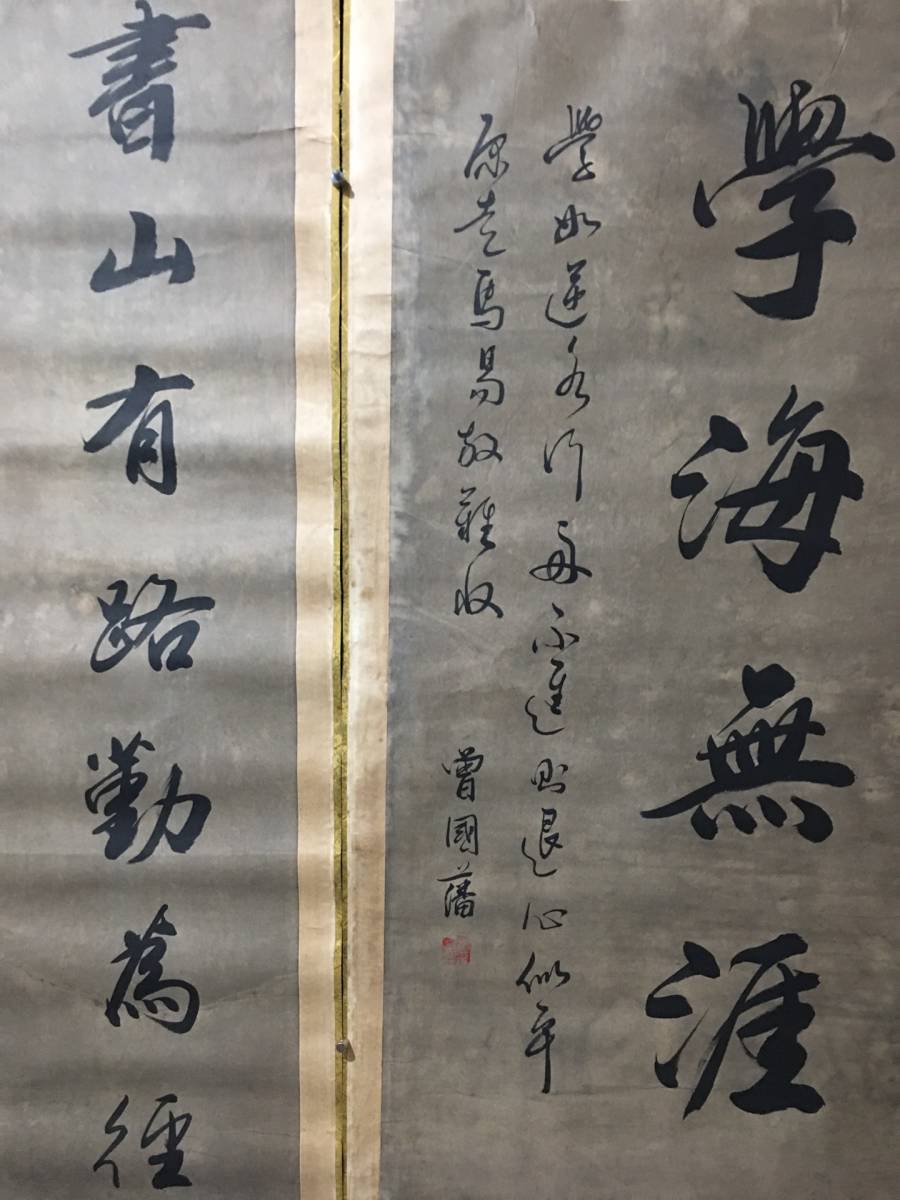 學海無涯
學如逆水行舟不進則退心似平
原走馬易放難收
曾國藩
書山有路勤為徑